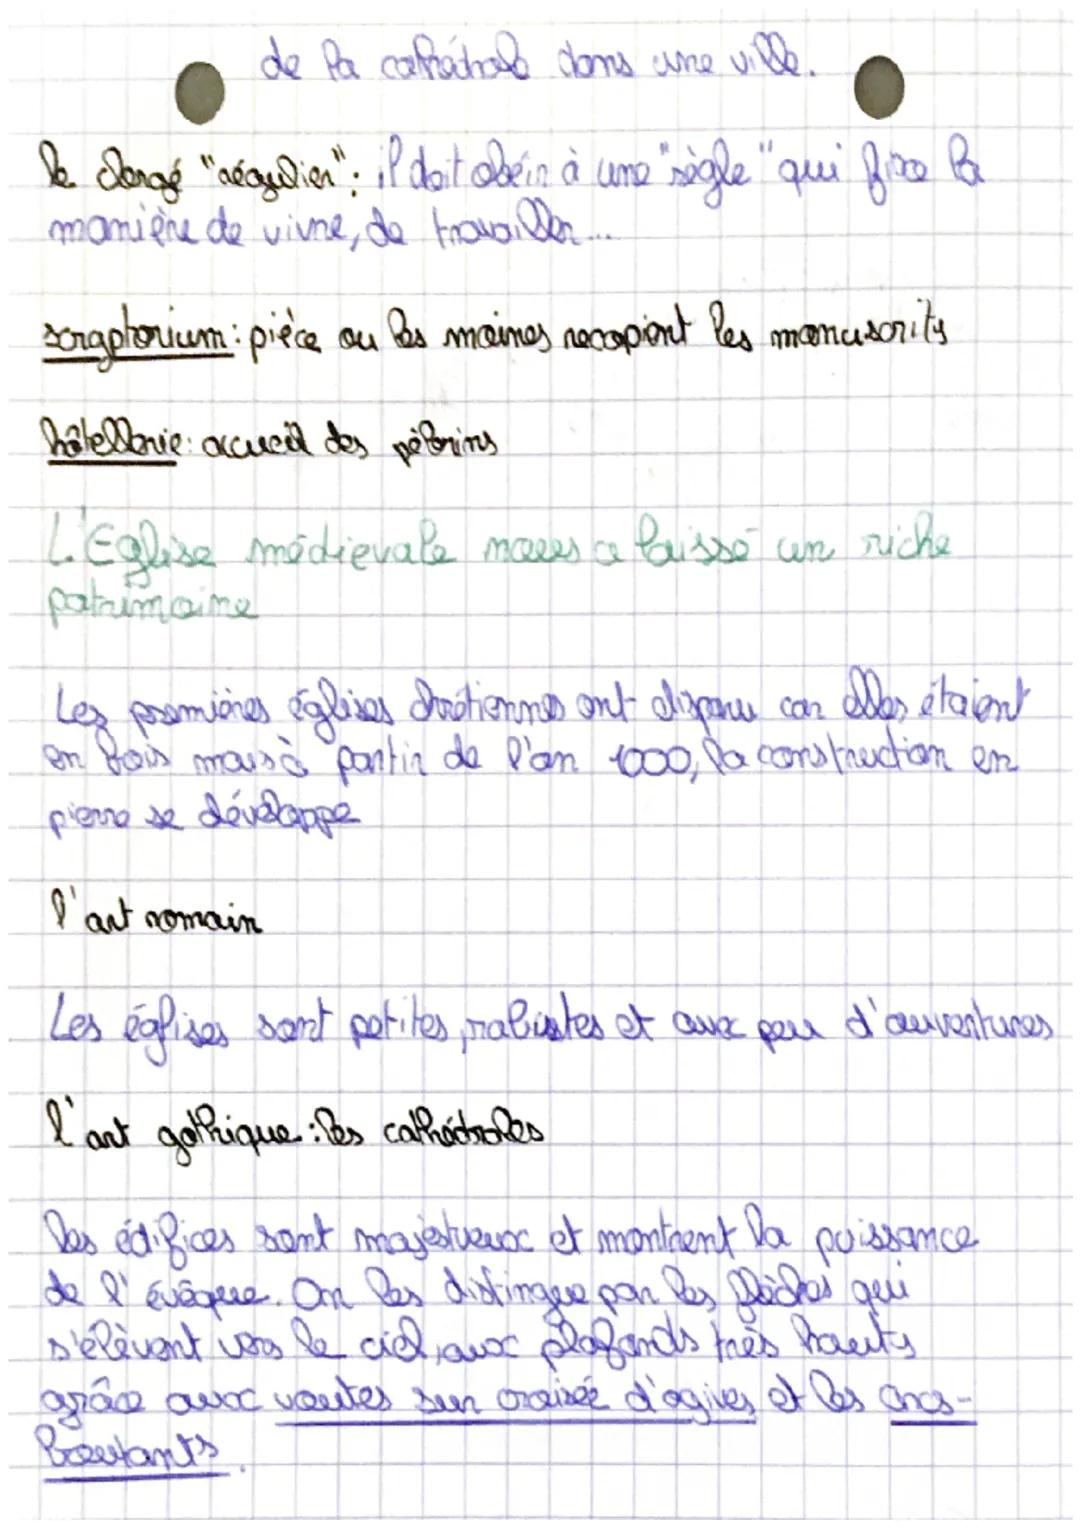 de la cathédrale dans une ville.
le clergé "régulier": il doit obéir à une "règle" qui fixe la
manière de vivre, de travailler...
scraptorium: pièce ou les moines recopient les manuscrits
hôtellerie: accueil des pélerins
L'Eglise médievale nous a laissé un riche
patrimoine
Les premières églises chrétiennes ont disparu car elles étaient
en bois mais à partir de l'an 1000, la construction en
pierre se développe
l'art romain
Les églises sont petites, rabistes et avec peu d'ouvertures
l'art gothique: les cathédrales
Les édifices sont majestueux et montrent la puissance
de l'évêque. On les distingue par les flèches qui
s'élèvent vers le ciel, aux plafonds très hauts
grâce aux voutes sur croisée d'ogives et les arcs-
boutants.